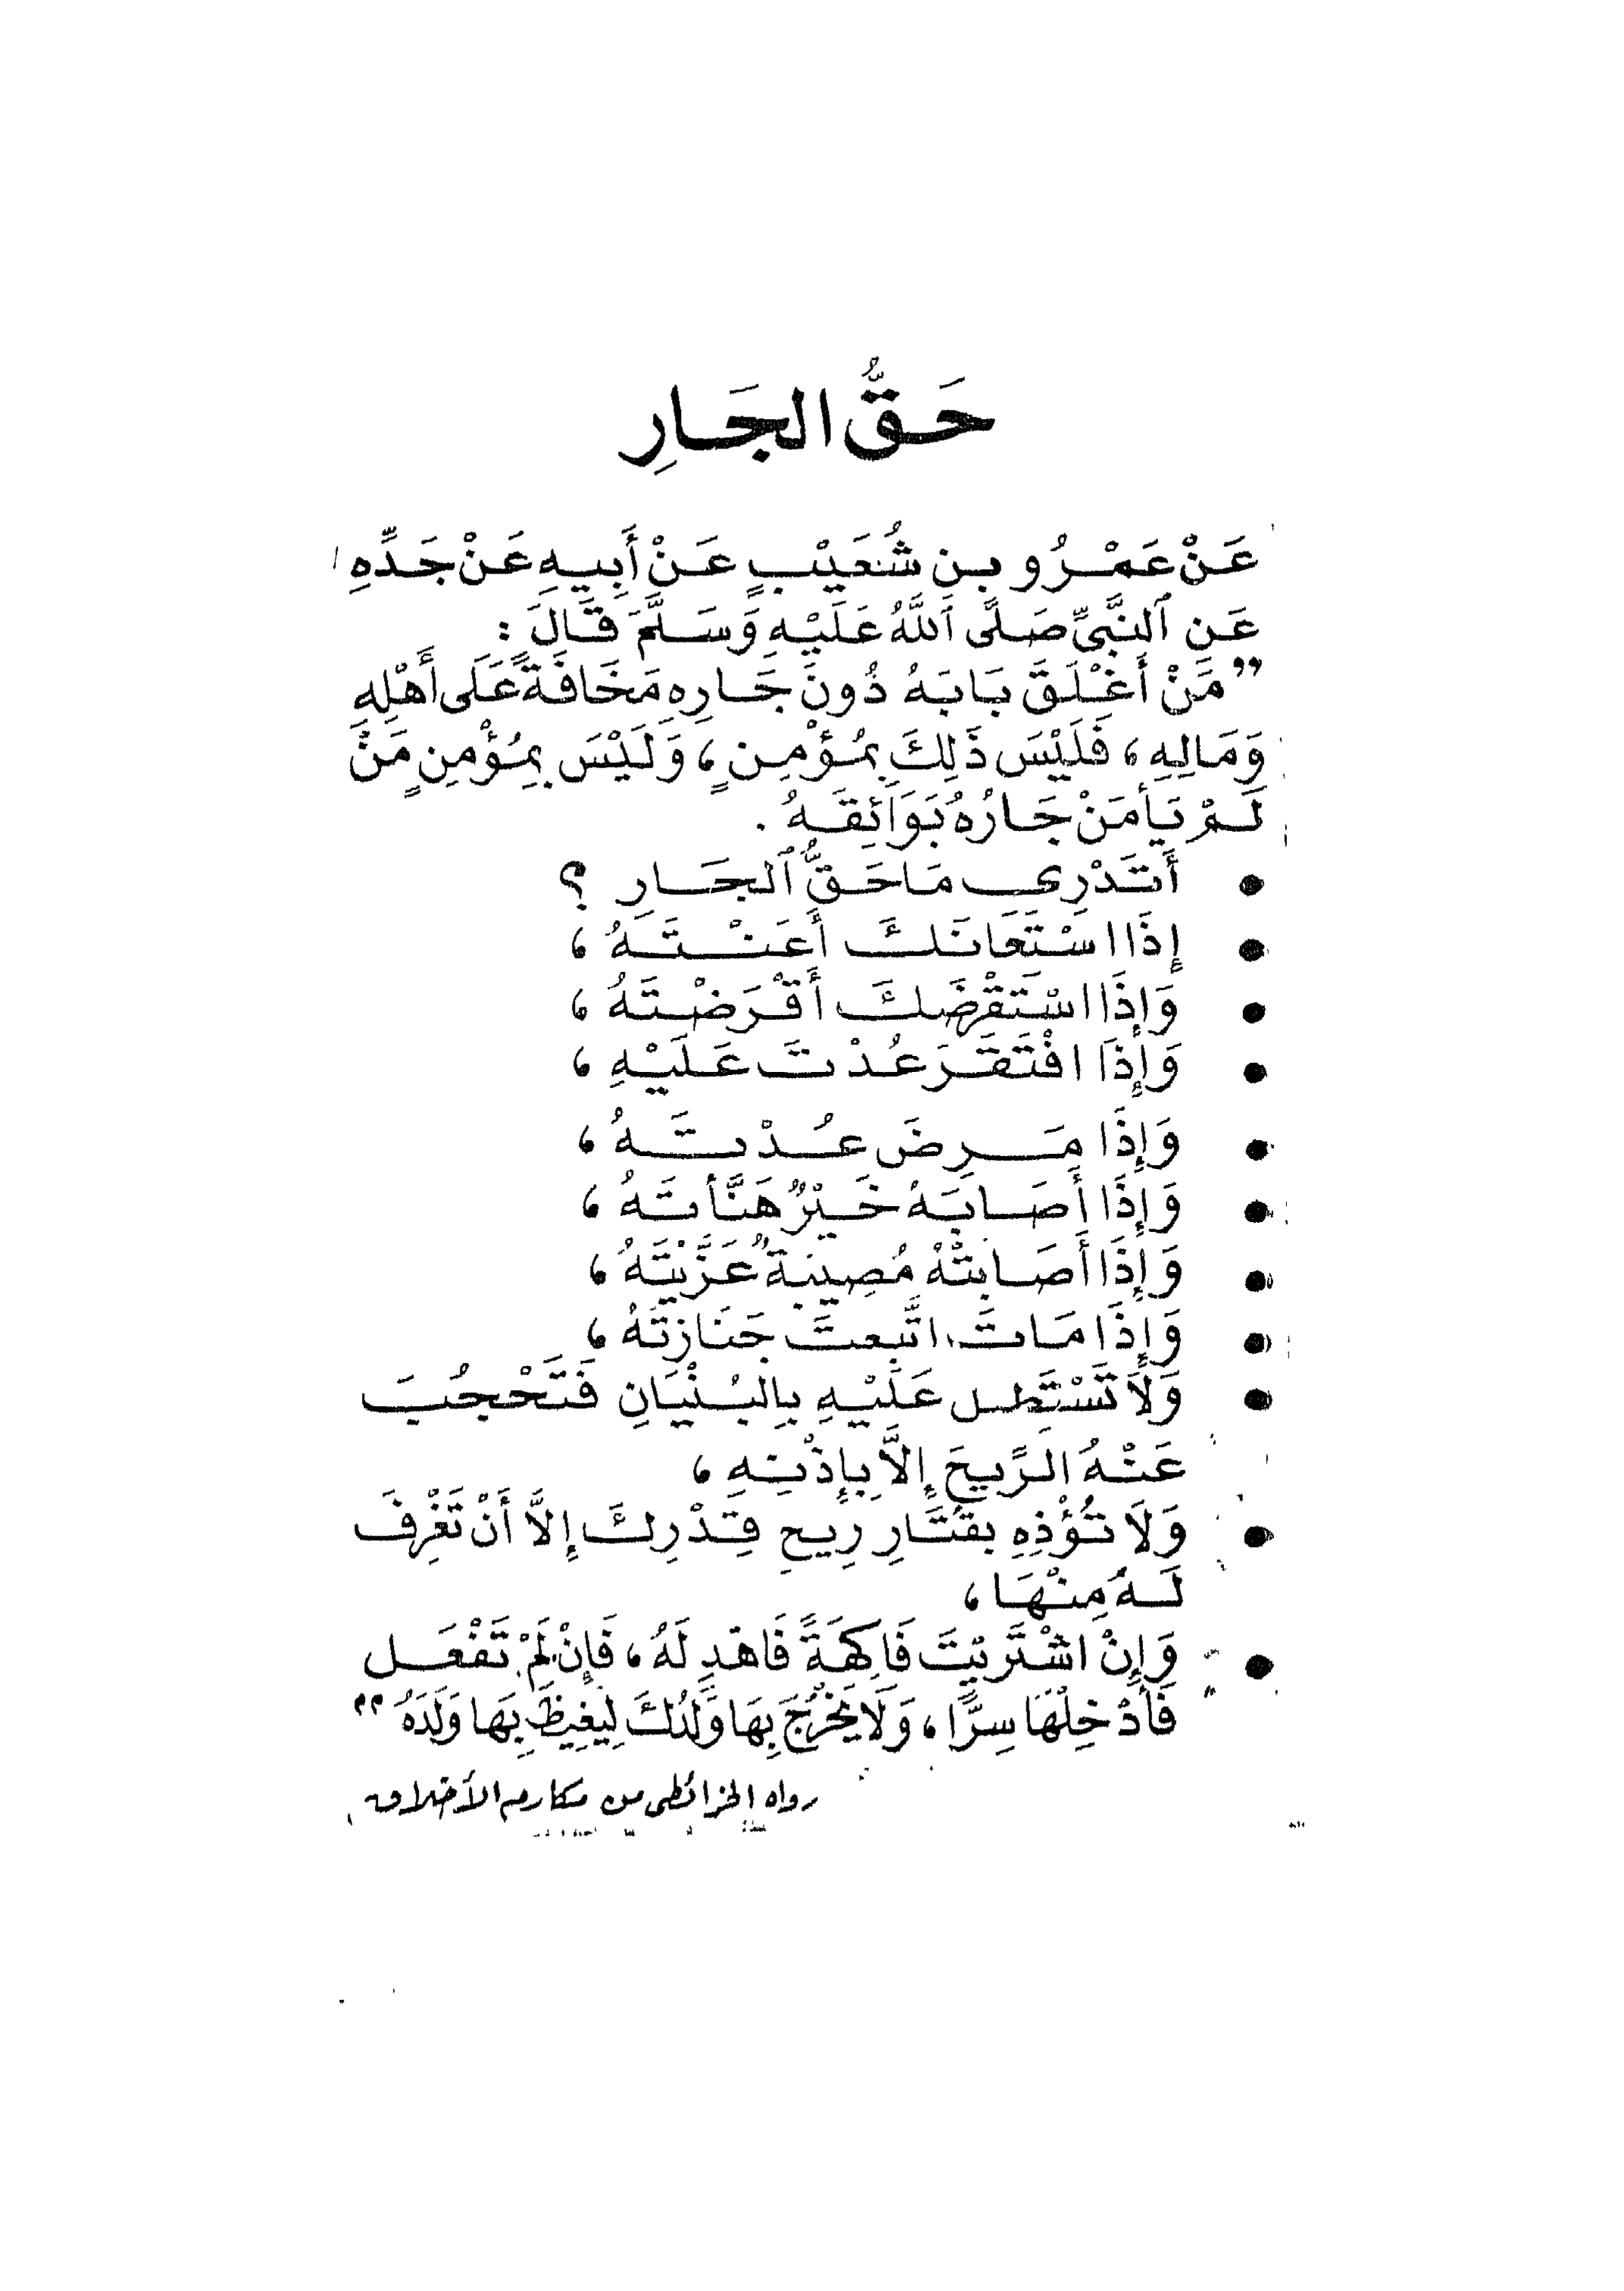 حَقُّ الجَارِ
عَنْ عَمْرُو بن شُعَيْبٍ عَنْ أَبِيهِ عَنْ جَدِّهِ
عَنِ ٱلنَّبِيِّ صَلَّى ٱللَّهُ عَلَيْهِ وَسَلَّمَ قَالَ :
” مَنْ أَغْلَقَ بَابَهُ دُونَ جَارِهِ مَخَافَةً عَلَى أَهْلِهِ
وَمَالِهِ ، فَلَيْسَ ذَلِكَ بِمُؤْمِنٍ ، وَلَيْسَ بِمُؤْمِنٍ مَنْ
لَمْ يَأمَنْ جَارُهُ بَوَائِقَهُ .
• أَتَدْرِي مَا حَقُّ ٱلجَارِ ؟
• إِذَا اسْتَعَانَكَ أَعَنْتَهُ ،
• وَإِذَا اسْتَقْرَضَكَ أَقْرَضْتَهُ ،
• وَإِذَا افْتَقَرَ عُدْتَ عَلَيْهِ ،
• وَإِذَا مَرِضَ عُدْتَهُ ،
• وَإِذَا أَصَابَهُ خَيْرٌ هَنَّأتَهُ ،
• وَإِذَا أَصَابتْهُ مُصِيبَةٌ عَزَّيْتَهُ ،
• وَإِذَا مَاتَ اتَّبعتَ جَنَازتَهُ ،
• وَلَا تَسْتَطِل عَلَيْهِ بِالبُنْيَانِ فَتَحْجُبَ
عَنْهُ الرِّيحَ إِلاَّ بِإِذْنِهِ ،
• وَلَا تُؤْذِهِ بقُتَارِ رِيحِ قِدْرِكَ إِلاَّ أَنْ تَغْرِفَ
لَهُ مِنْهَا ،
• وَإِنْ اشْتَريْتَ فَاكِهَةً فَاهْدِ لَهُ ، فَإِنْ لَمْ تَفْعَل
فَأَدْخِلْهَا سِرًّا ، وَلَا يَخْرُجَ بِهَا وَلَدُكَ لِيَغِيظَ بِهَا وَلَدَهُ ”
رواه الخرائطي من مكارم الأخلاق